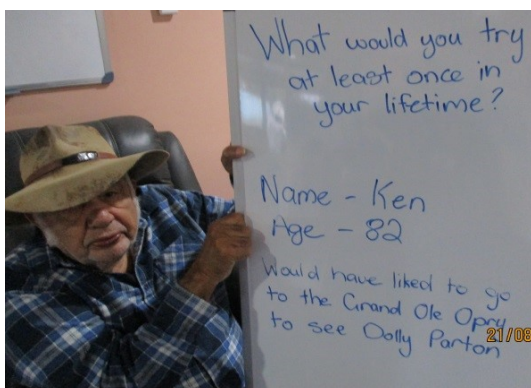 What would you try
at least once in
your lifetime?
Name - Ken
Age - 82
Would have liked to go
to the Grand Ole Opry
to see Dolly Parton
21/08